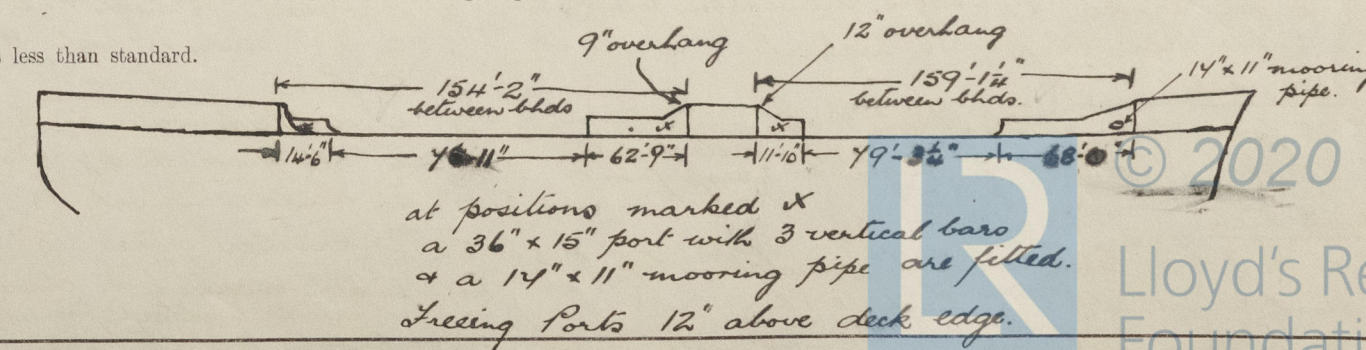 9" overhang
12" overhang
s less than standard.
154'-2"
between bhds
159'-1¼"
between bhds.
14" x 11" mooring
pipe.
x
x
x
14'-6"
62'-9"
11'-10"
at positions marked x
a 36" x 15" port with 3 vertical bars
& a 14" x 11" mooring pipe are fitted.
Freeing Ports 12" above deck edge.
© 2020
Lloyd's Re
Foundati